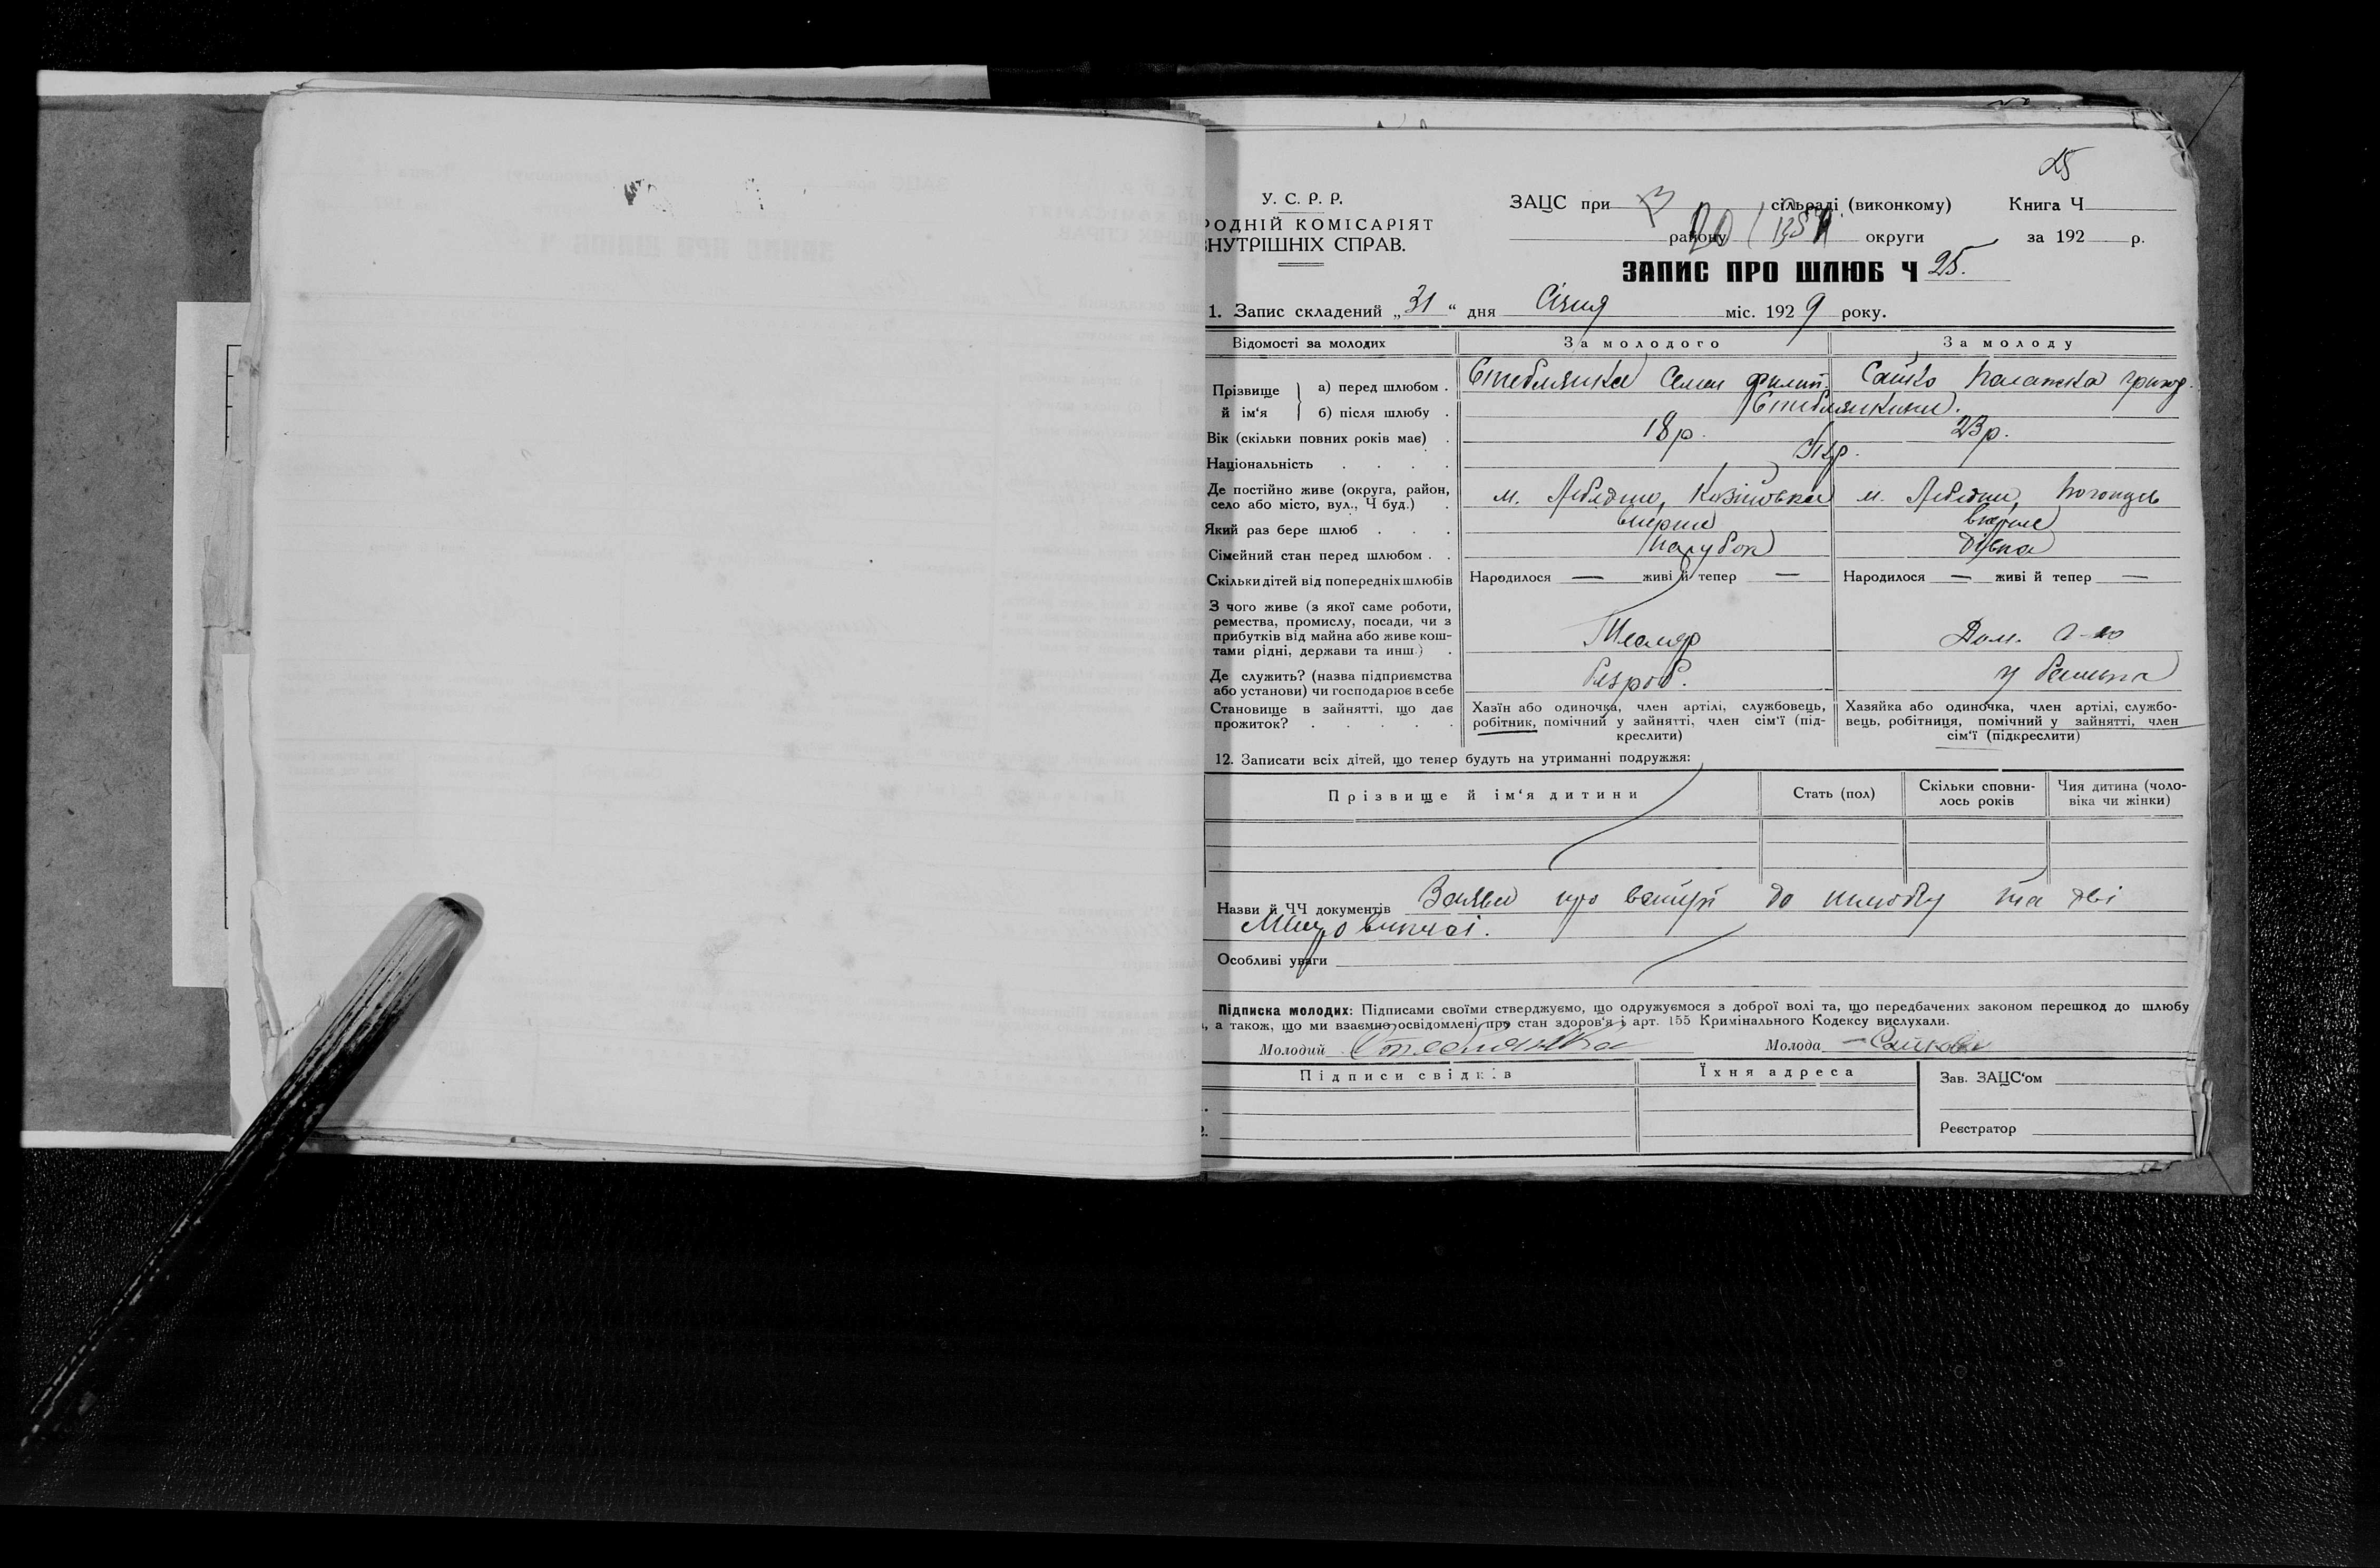 25
У. С. Р. Р.
РОДНІЙ КОМІСАРІЯТ
ВНУТРІШНІХ СПРАВ.
ЗАЦС при сільраді (виконкому) Книга Ч
району округи за 192 р.
ЗАПИС ПРО ШЛЮБ Ч 25.
1. Запис складений „31“ дня Січня міс. 1929 року.
Відомості за молодих За молодого За молоду
Прізвище й ім‘я а) перед шлюбом . Стеблянка Семен Филип. Сайко Палажка Григор.
б) після шлюбу . Стеблянкини.
Вік (скільки повних років має) . 18 р. 23 р.
Національність . . . . Укр.
Де постійно живе (округа, район, село або місто, вул., Ч буд.) . м. Лебедин, м. Лебедин,
Який раз бере шлюб . . . вперше вперше
Сімейний стан перед шлюбом . . парубок дівка
Скільки дітей від попередніх шлюбів Народилося — живі й тепер — Народилося — живі й тепер —
З чого живе (з якої саме роботи,
ремества, промислу, посади, чи з
прибутків від майна або живе кош-
тами рідні, держави та инш.) . Тесляр Дом. г-во
Де служить? (назва підприємства
або установи) чи господарює в себе безроб. у батька
Становище в зайнятті, що дає
прожиток? . . . . .
Хазїн або одиночка, член артілі, службовець,
робітник, помічний у зайнятті, член сім‘ї (під-
креслити)
Хазяйка або одиночка, член артілі, службо-
вець, робітниця, помічний у зайнятті, член
сім‘ї (підкреслити)
12. Записати всіх дітей, що тепер будуть на утриманні подружжя:
Прізвище й ім‘я дитини Стать (пол) Скільки сповни-
лось років Чия дитина (чоло-
віка чи жінки)
Назви й ЧЧ документів Заява про вступ до шлюбу та дві
Метр. виписі.
Особливі уваги
Підписка молодих: Підписами своїми стверджуємо, що одружуємося з доброї волі та, що передбачених законом перешкод до шлюбу
, а також, що ми взаємно освідомлені про стан здоров‘я і арт. 155 Кримінального Кодексу вислухали.
Молодий Стеблянка Молода Сайкова
Підписи свідків Їхня адреса Зав. ЗАЦС‘ом
Реєстратор